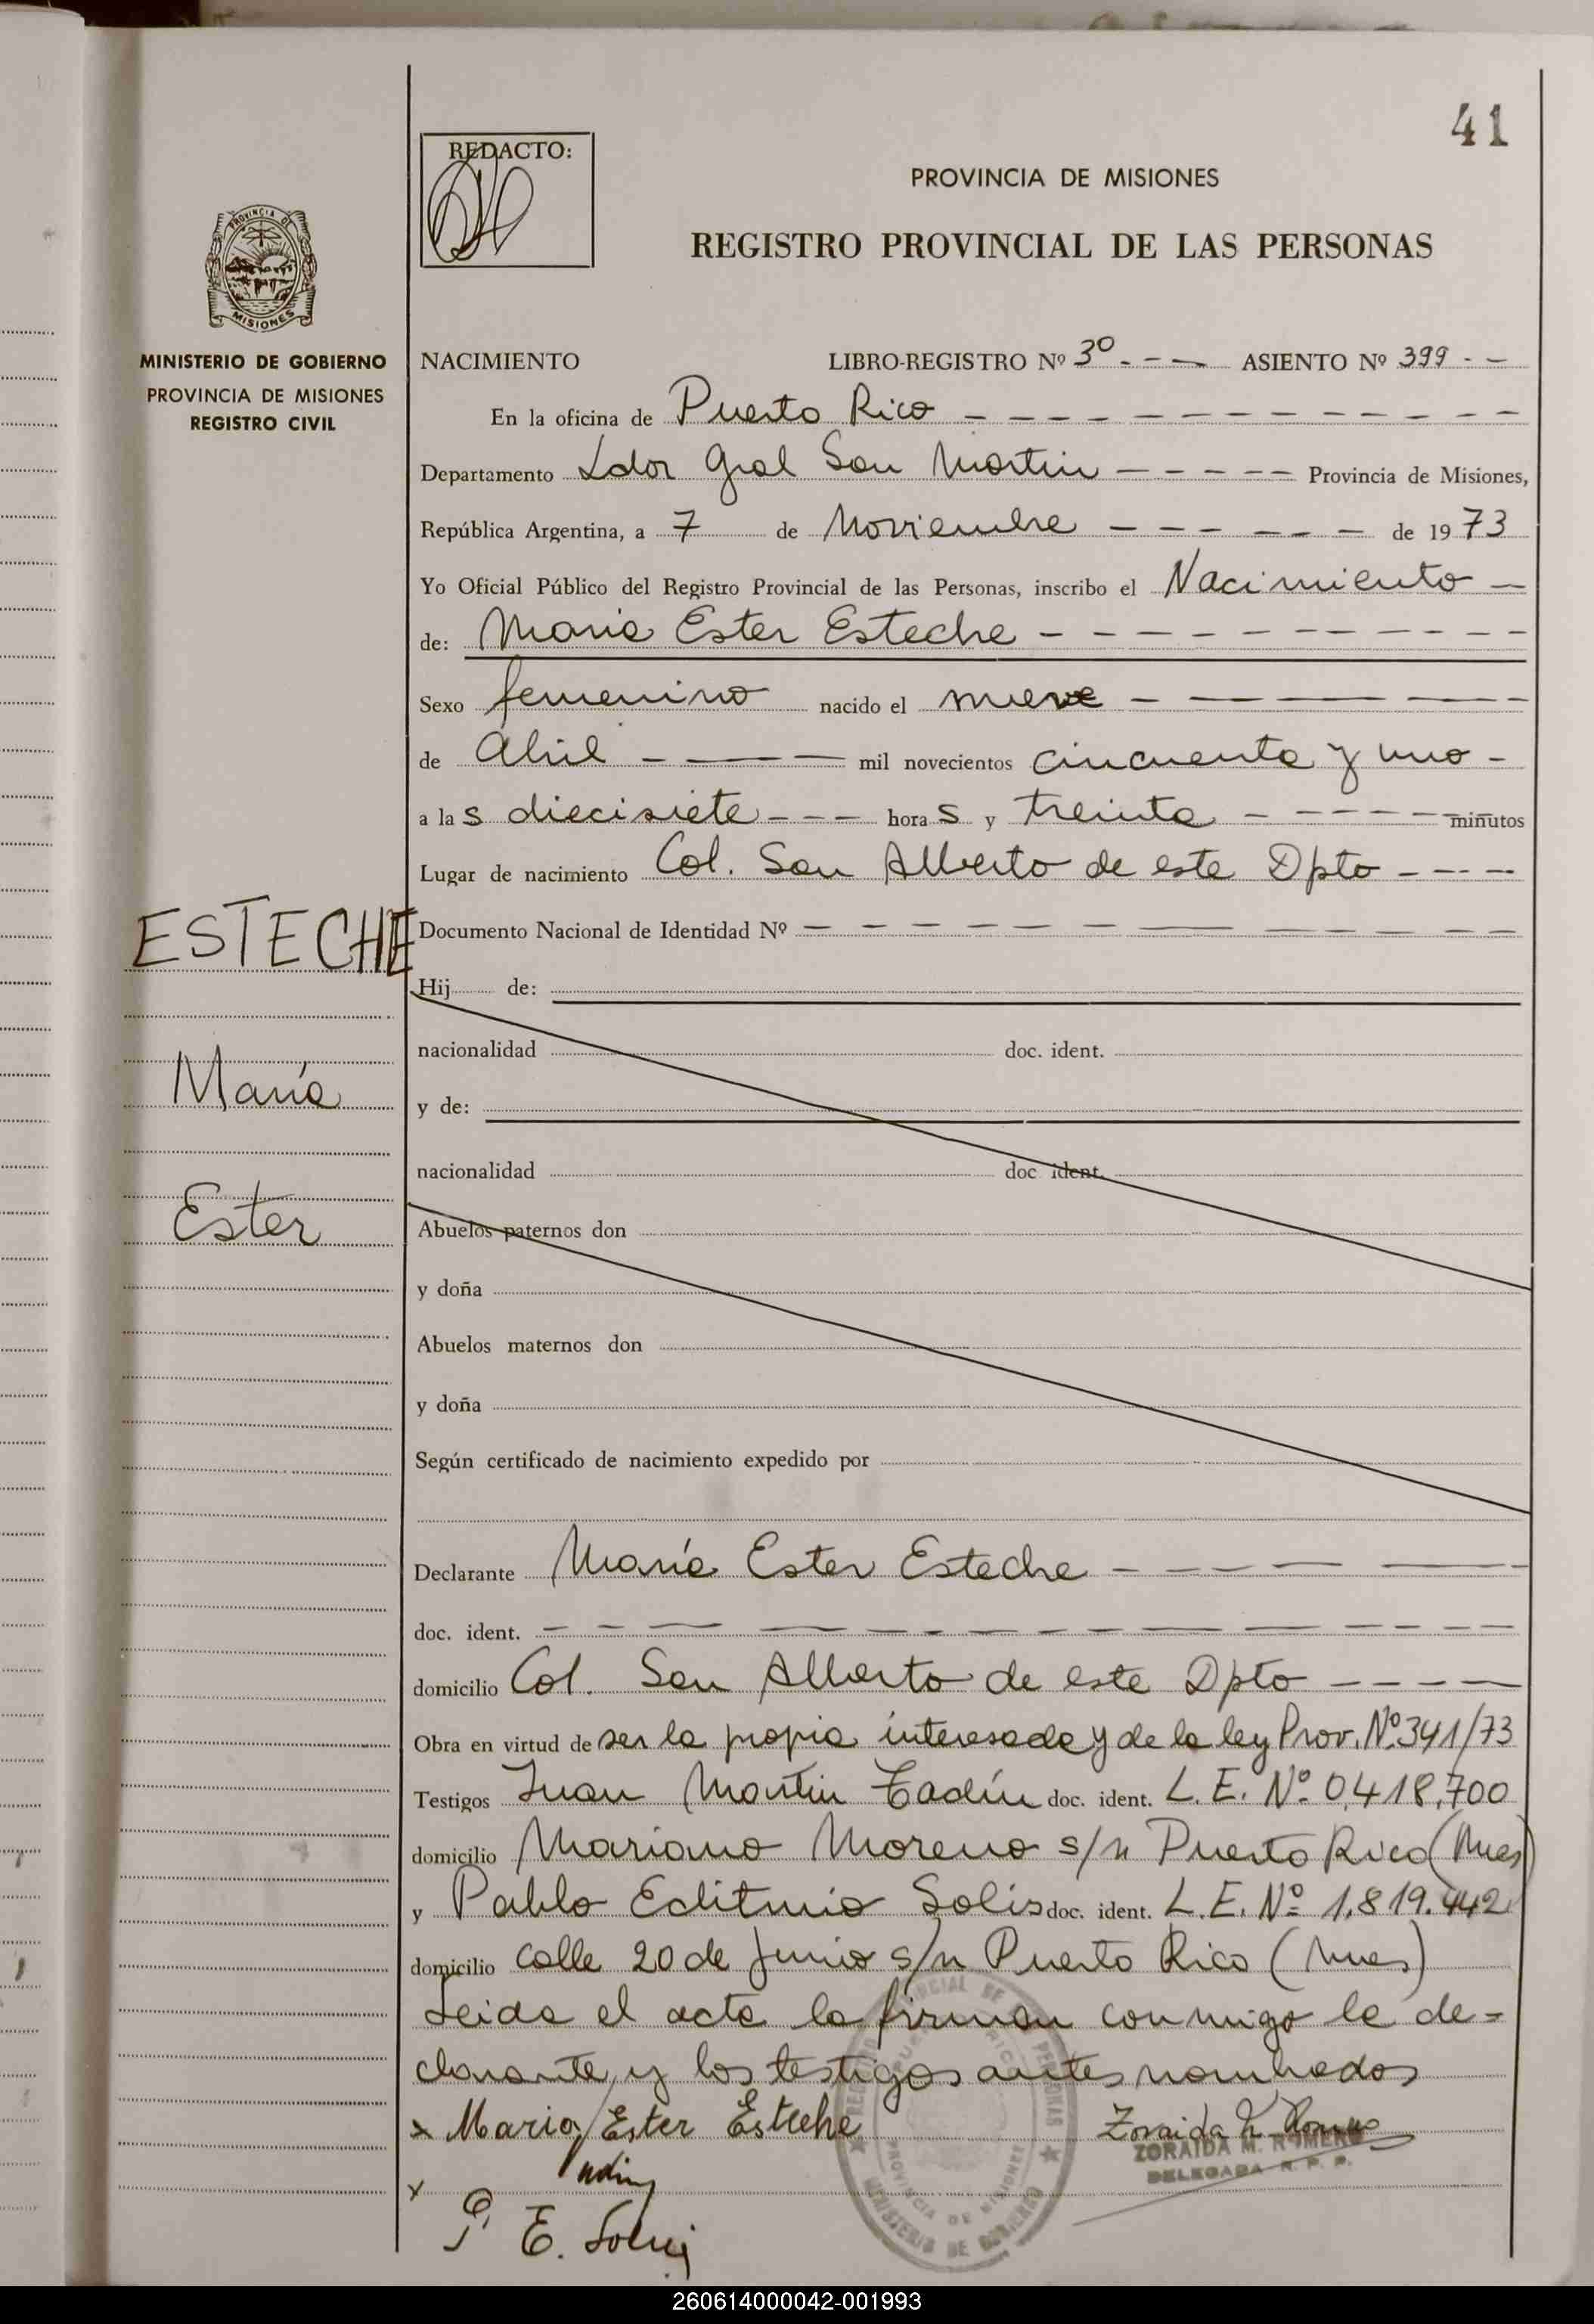 41
REDACTO:
PROVINCIA DE MISIONES
REGISTRO PROVINCIAL DE LAS PERSONAS
PROVINCIA DE
MISIONES
MINISTERIO DE GOBIERNO
PROVINCIA DE MISIONES
REGISTRO CIVIL
NACIMIENTO LIBRO-REGISTRO Nº 3º - - - ASIENTO Nº 399 - -
En la oficina de Puerto Rico - - - - - - - - - - - - -
Departamento Ldor Gral San Martin - - - - - Provincia de Misiones,
República Argentina, a 7 de Noviembre - - - - - - de 1973
Yo Oficial Público del Registro Provincial de las Personas, inscribo el Nacimiento -
de: María Ester Esteche - - - - - - - - - - - -
Sexo femenino nacido el nueve - - - -
de Abril - - - mil novecientos cincuenta y uno -
a las diecisiete - - - horas y treinta - - - - - minutos
Lugar de nacimiento Col. San Alberto de este Dpto - - -
ESTECHE
Documento Nacional de Identidad Nº - - - - - - - - - - -
Hij de:
nacionalidad doc. ident.
María
y de:
nacionalidad doc ident.
Ester
Abuelos paternos don
y doña
Abuelos maternos don
y doña
Según certificado de nacimiento expedido por
Declarante María Ester Esteche - - - - -
doc. ident. - - - - - - - - - - - - -
domicilio Col. San Alberto de este Dpto - - - -
Obra en virtud de ser la propia interesada y de la ley Prov. Nº 341/73
Testigos Juan Martin Tadín doc. ident. L.E. Nº 0,418,700
domicilio Mariano Moreno s/n Puerto Rico (Mnes)
y Pablo Solís doc. ident. L.E. Nº 1.819.442
domicilio calle 20 de Junio s/n Puerto Rico (Mnes)
Leida el acta la firman conmigo la de=
clarante, y los testigos antes nombrados
x Maria Ester Esteche
Zoraida M. Romero
ZORAIDA M. ROMERO
DELEGADA R. P. P.
x
P. E. Solis
PROVINCIA DE MISIONES
MINISTERIO DE GOBIERNO
260614000042-001993